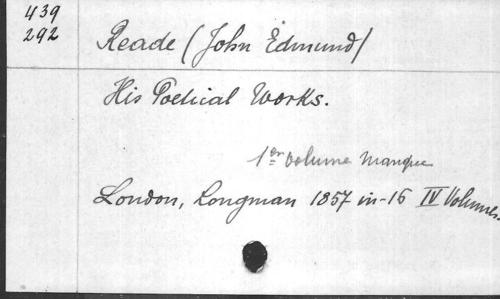 439
292
Reade (John Edmund)
His Poetical Works.
1er volume manque
London, Longman 1857 in-16 IV Volumes.